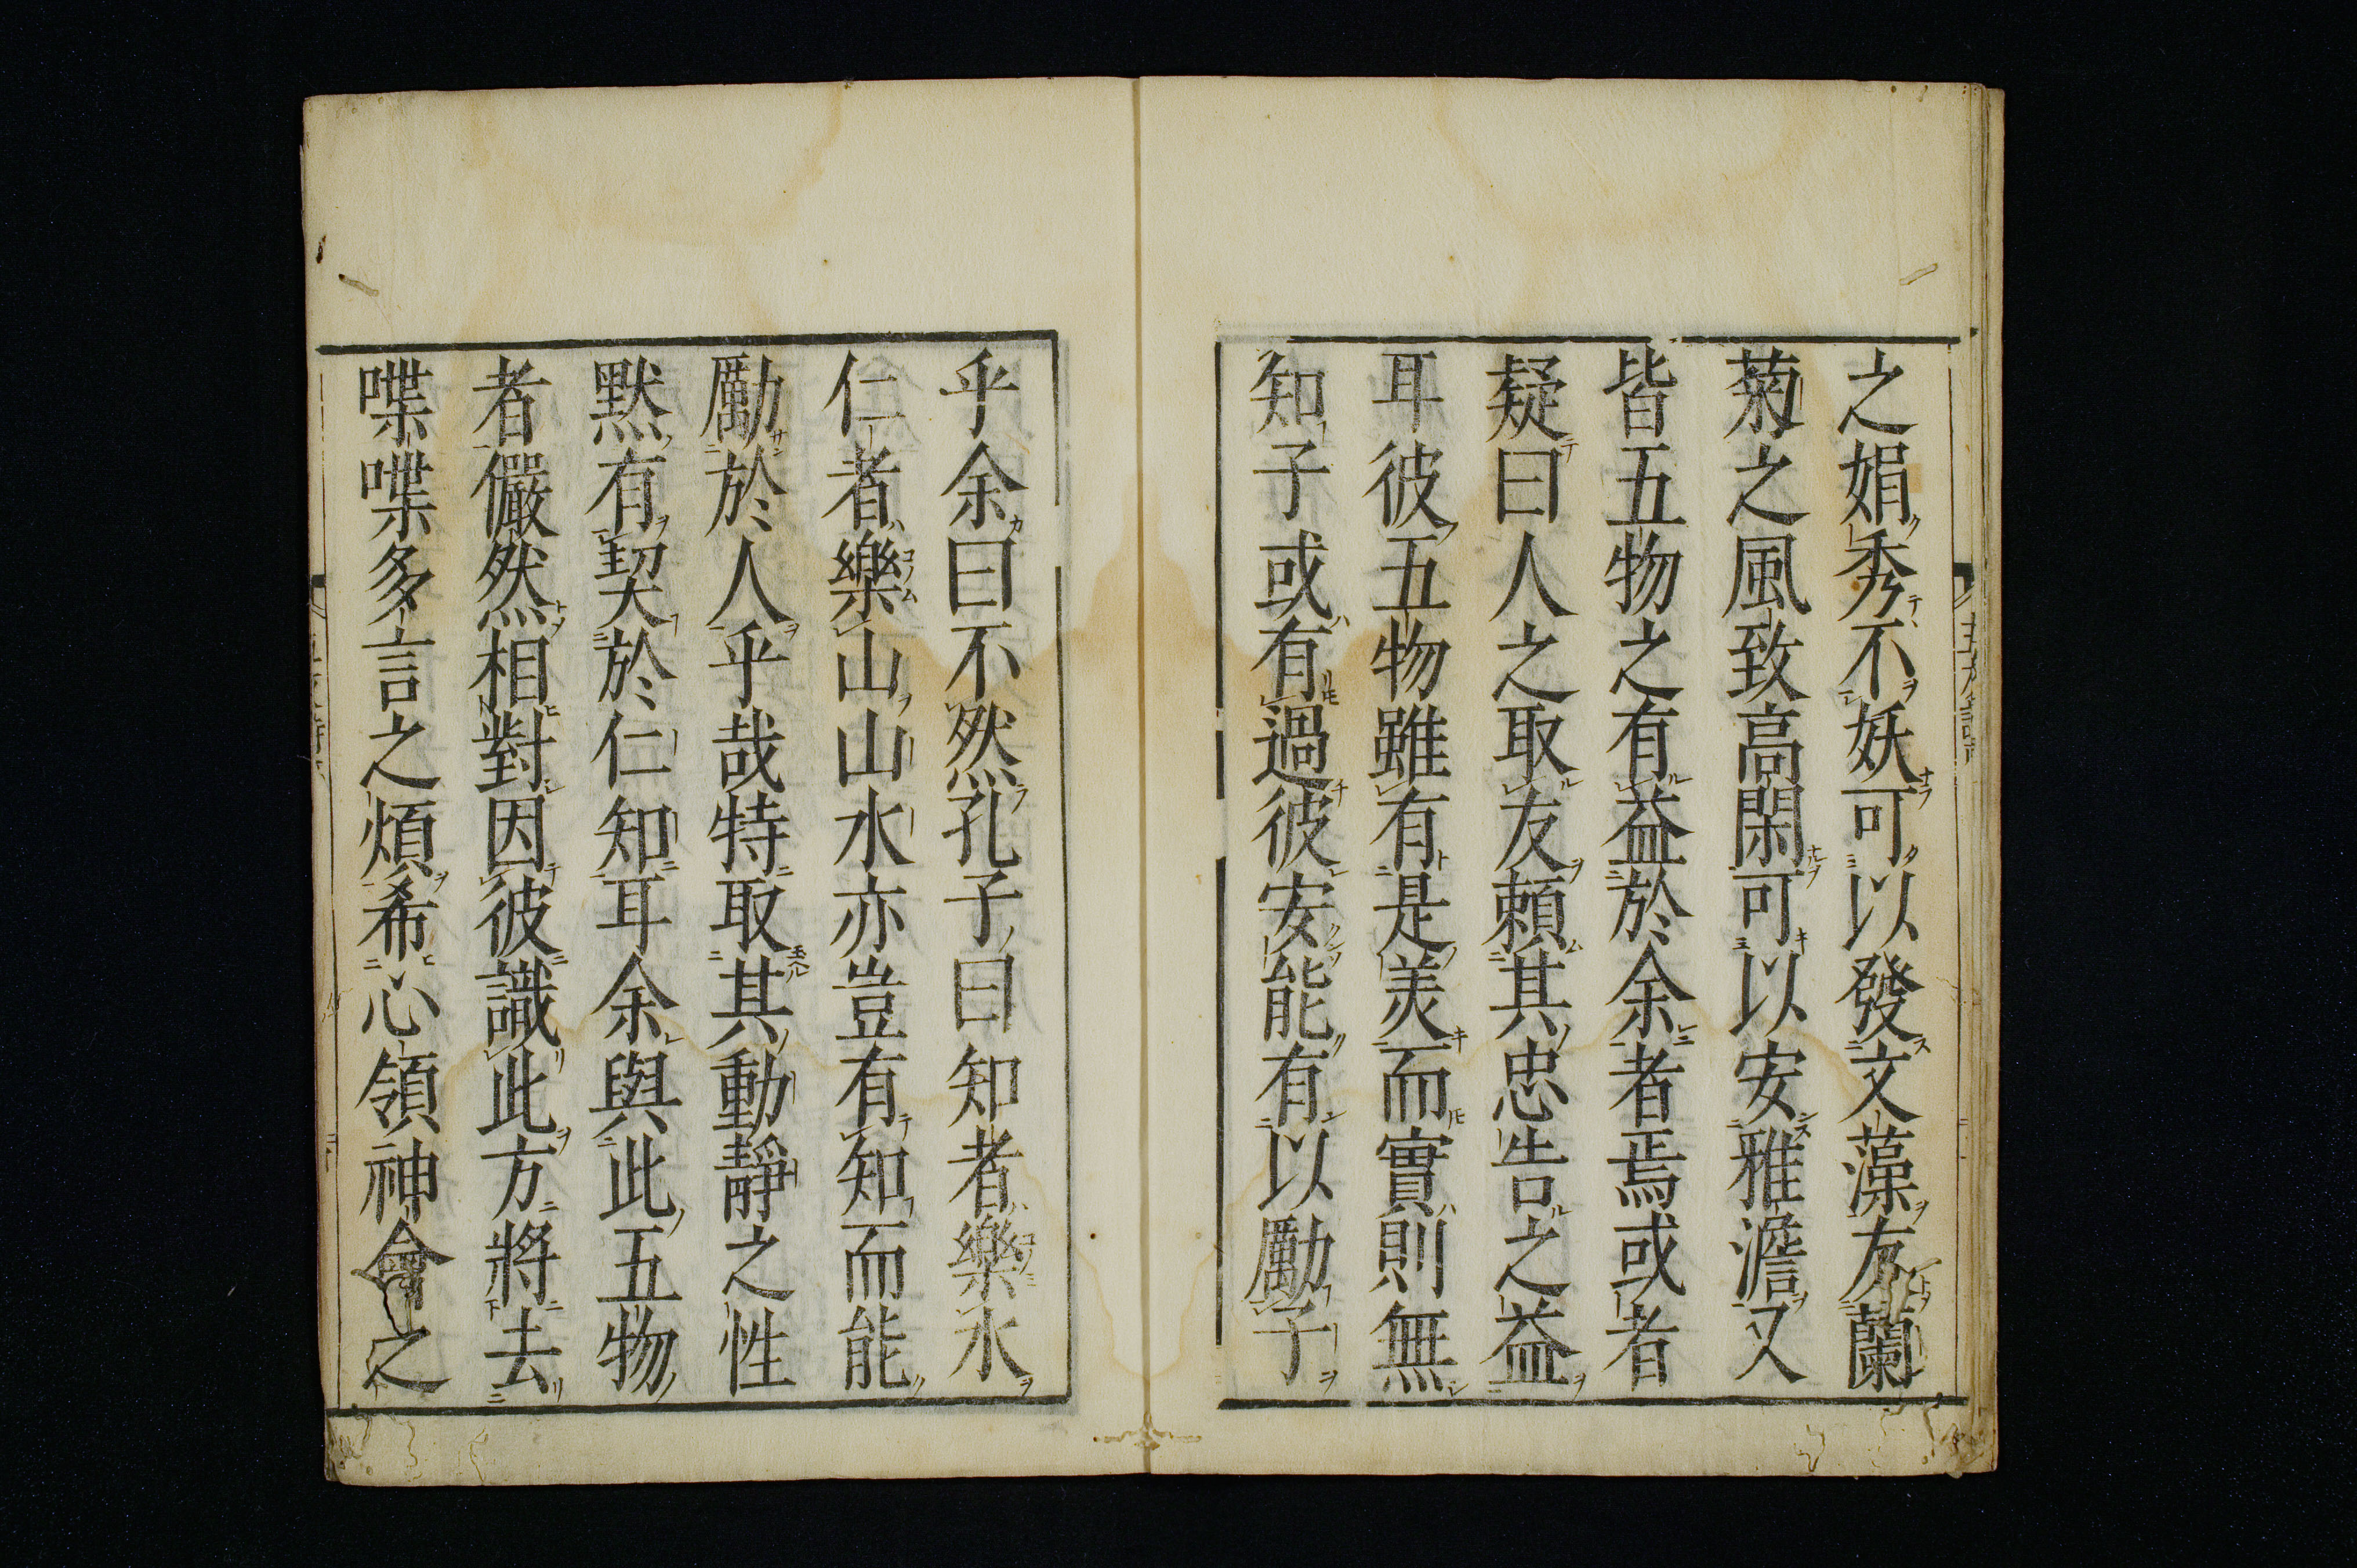 之娟秀不妖可以發文藻友蘭
菊之風致高閑可以安雅澹又
皆五物之有益於余者焉或者
疑曰人之取友頼其忠告之益
耳彼五物雖有是羙而實則無
知子或有過彼安能有以勵子
乎余曰不然孔子曰知者樂水
仁者樂山山水亦豈有知而能
勵於人乎哉特取其動靜之性
默有契於仁知耳余與此五物
者儼然相對因彼識此方將去
喋喋多言之煩希心領神會之